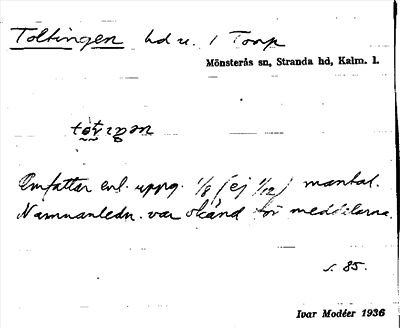 Toltingen hd u. 1 Torp
Mönsterås sn, Stranda hd, Kalm. l.
Omfattar enl. uppg. 1/8 (ej 1/12) mantal.
Namnanledn. var okänd för meddelarna.
s. 85.
Ivar Modéer 1936